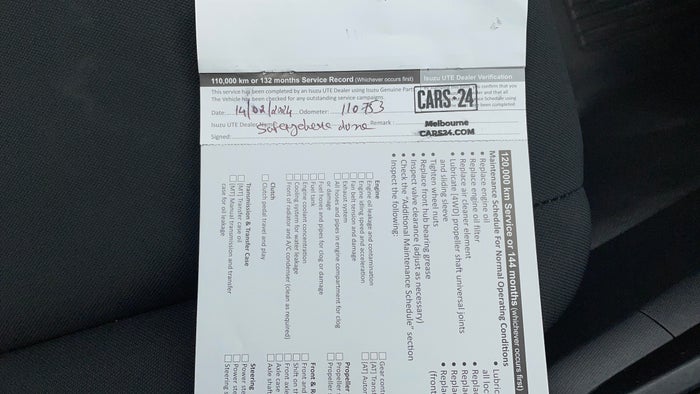 110,000 km or 132 months Service Record (Whichever occurs first)
Isuzu UTE Dealer Verification
This service has been completed by an Isuzu UTE Dealer using Isuzu Genuine Par
The Vehicle has been checked for any outstanding service campaigns.
Date: 14/02/2024 Odometer: 110753
Isuzu UTE Dealer Remark:
Signed:
CARS24
Melbourne
CARS24.COM
confirm that you
and that all
Schedule using
been completed
120,000 km Service or 144 months (whichever occurs first)
Maintenance Schedule For Normal Operating Conditions
• Replace engine oil
• Replace engine oil filter
• Replace air cleaner element
• Lubricate [4WD] propeller shaft universal joints
and sliding sleeve
• Tighten wheel nuts
• Replace front hub bearing grease
• Inspect valve clearance (adjust as necessary)
• Check the "Additional Maintenance Schedule" section
• Inspect the following:
• Lubric
all loc
• Repla
• Repla
• Repla
• Repla
(front
Engine
Engine oil leakage and contamination
Engine idling speed and acceleration
Fan belt tension and damage
Exhaust system
All hoses and pipes in engine compartment for clog
or damage
Fuel hoses and pipes for clog or damage
Fuel tank
Engine coolant concentration
Cooling system for water leakage
Front of radiator and A/C condenser (clean as required)
Clutch
Clutch pedal travel and play
Transmission & Transfer Case
[MT] Transfer case oil
[MT] Manual transmission and transfer
case for oil leakage
Gear cont
[AT] Trans
[AT] Autor
Propeller
Propeller
Propeller
Front & R
Front and
Shift on th
Front axle
Axle case
Axle shaft
Steering
Power ste
Power ste
Steering s